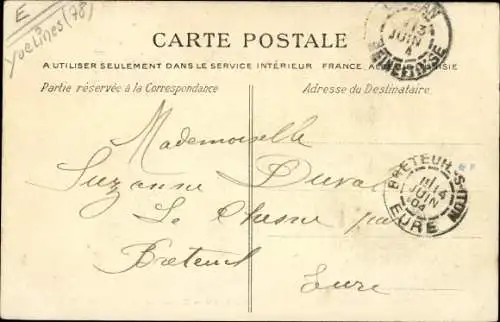 E
Yvelines (78)
13
JUIN
SEINE-ET-OISE
CARTE POSTALE
A UTILISER SEULEMENT DANS LE SERVICE INTÉRIEUR FRANCE, TUNISIE
Partie réservée à la Correspondance
Adresse du Destinataire.
Mademoiselle
Suzanne Duval
Le Chesne par
Breteuil
Eure
BRETEUIL-S-ITON
14
JUIN
04
EURE